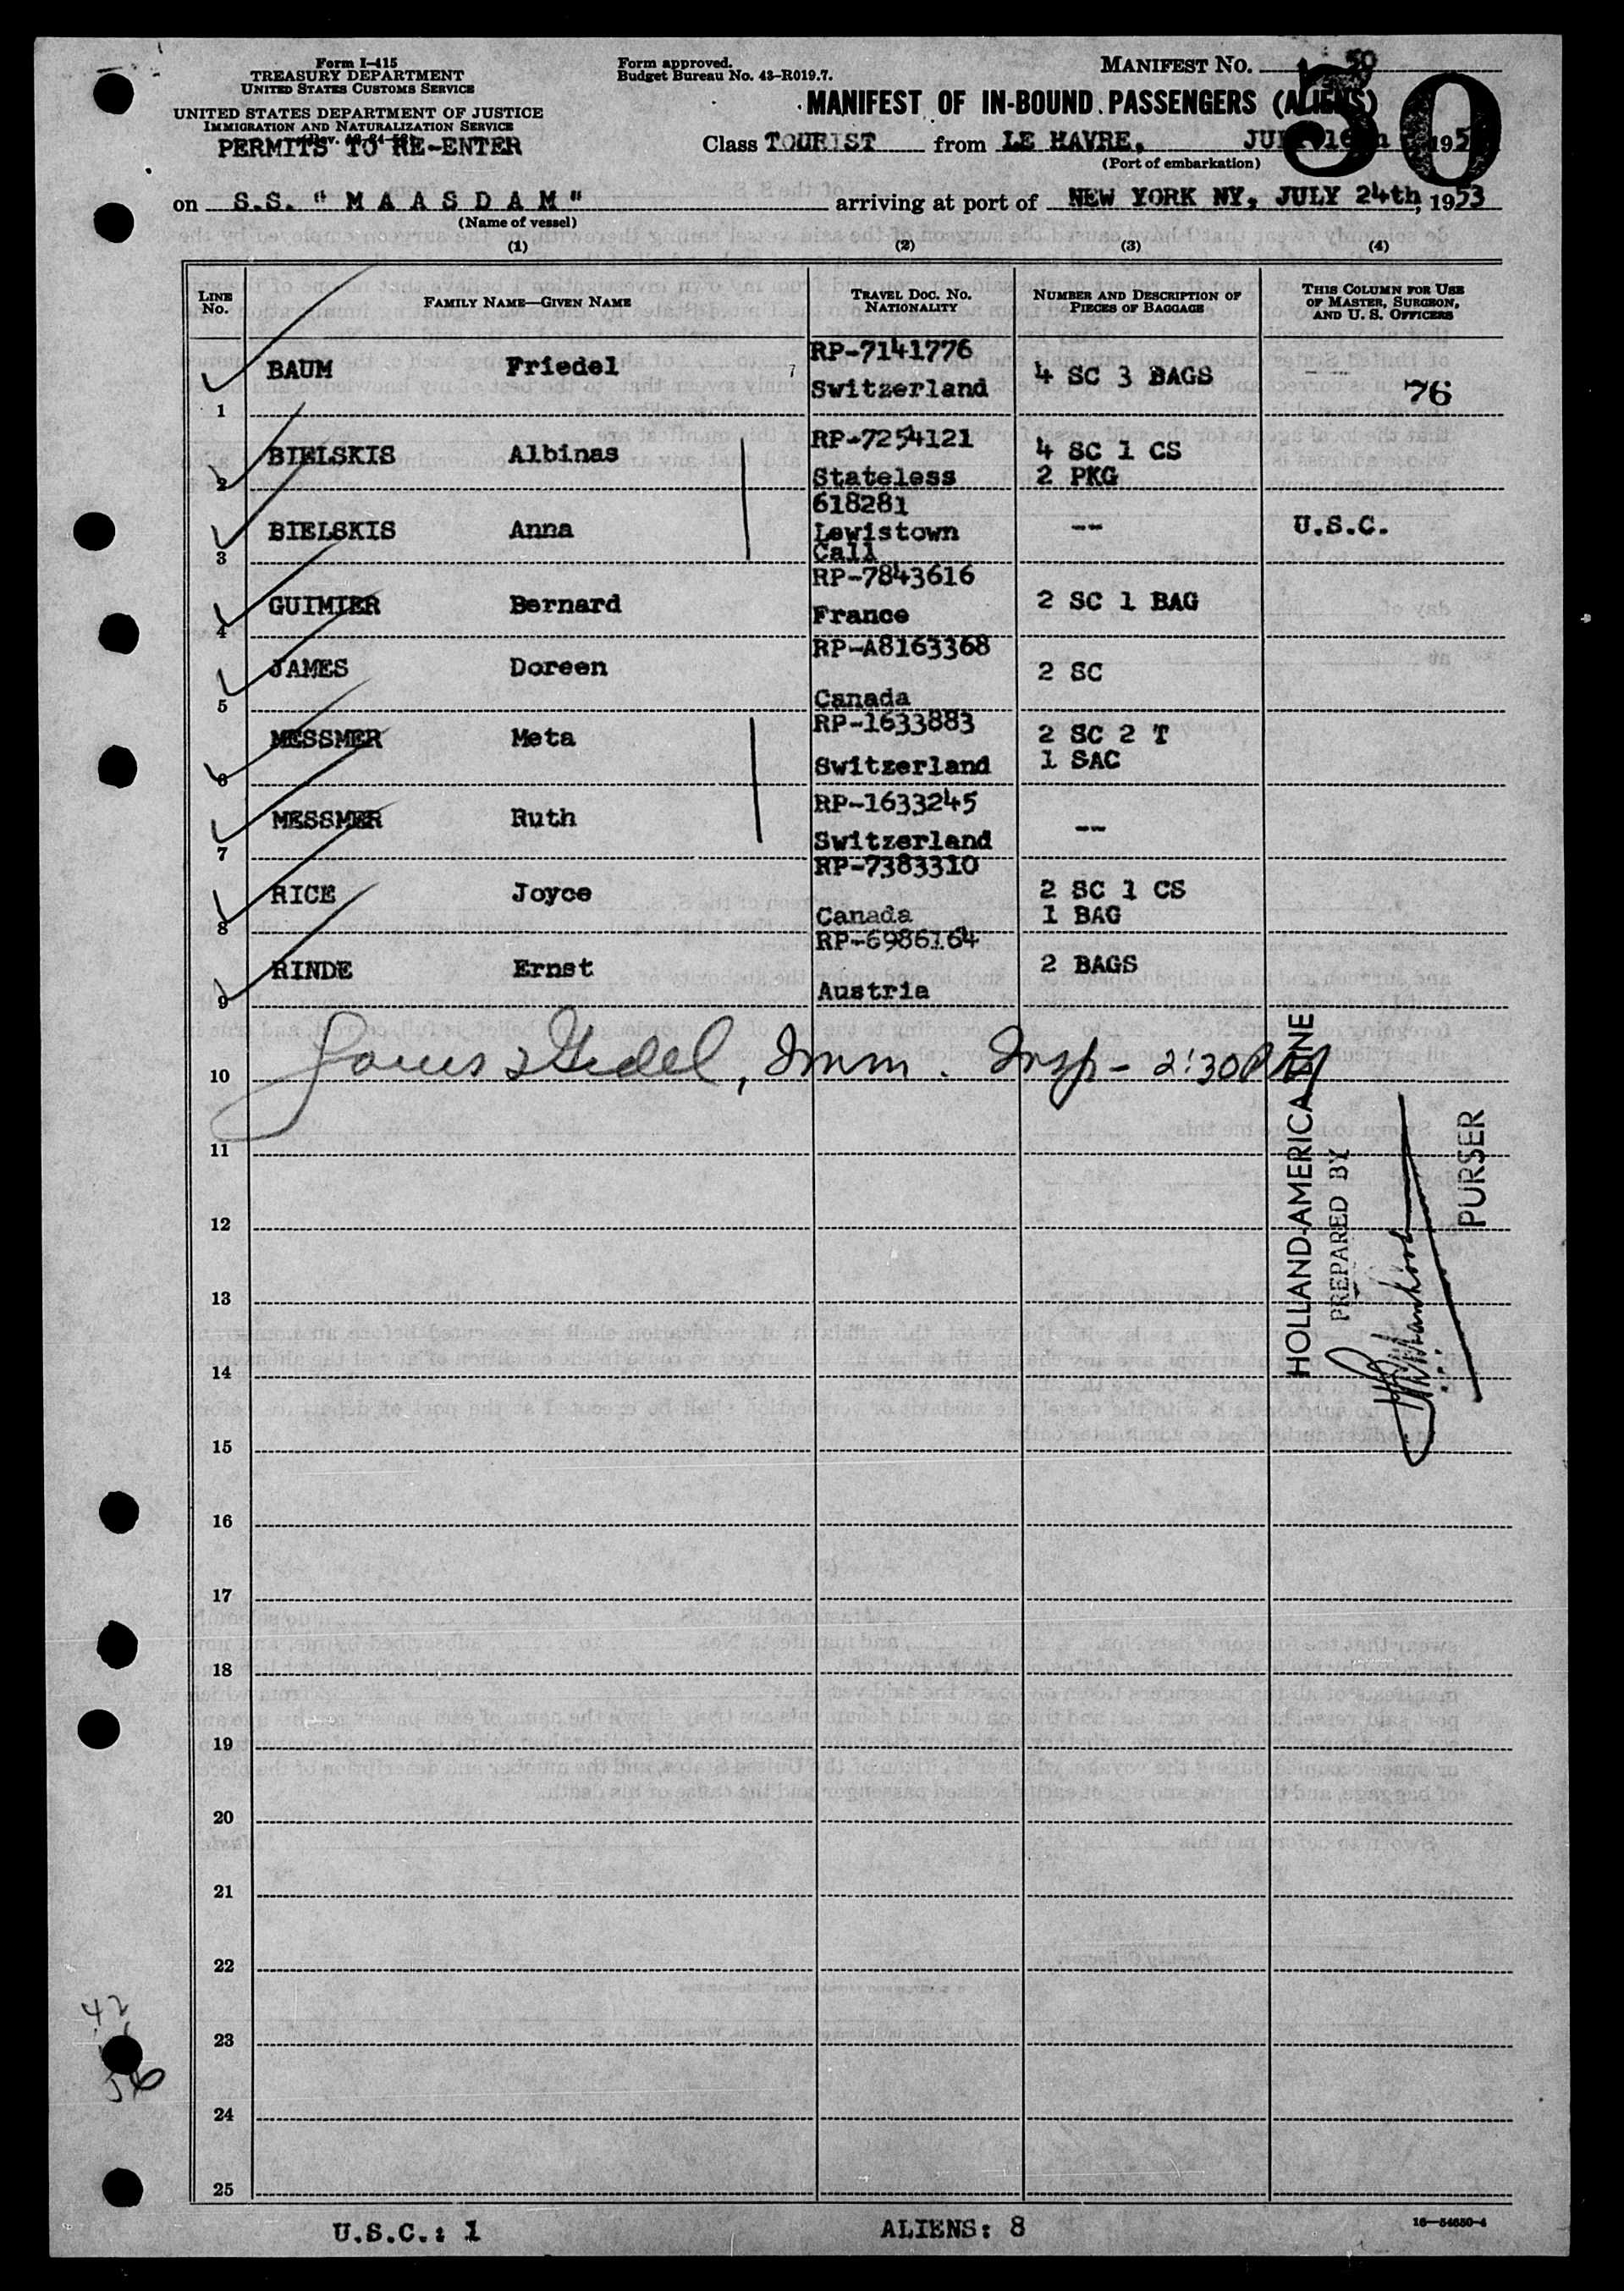 Form I-415
TREASURY DEPARTMENT
UNITED STATES CUSTOMS SERVICE
UNITED STATES DEPARTMENT OF JUSTICE
IMMIGRATION AND NATURALIZATION SERVICE
PERMITS TO RE-ENTER
Form approved.
Budget Bureau No. 43-R019.7.
MANIFEST NO. 50
50
MANIFEST OF IN-BOUND PASSENGERS (ALIENS)
Class TOURIST from LE HAVRE, 19
(Port of embarkation)
on S.S. "MAASDAM" arriving at port of NEW YORK NY, JULY 24th, 1953
(Name of vessel)
(1) (2) (3) (4)
LINE NO. FAMILY NAME—GIVEN NAME TRAVEL DOC. NO. NATIONALITY NUMBER AND DESCRIPTION OF PIECES OF BAGGAGE THIS COLUMN FOR USE OF MASTER, SURGEON, AND U. S. OFFICERS
1 BAUM Friedel RP-7141776 Switzerland 4 SC 3 BAGS 76
2 BIELSKIS Albinas RP-7254121 Stateless 4 SC 1 CS 2 PKG
3 BIELSKIS Anna 618281 Lewistown Call -- U.S.C.
4 GUIMIER Bernard RP-7843616 France 2 SC 1 BAG
5 JAMES Doreen RP-A8163368 Canada 2 SC
6 MESSMER Meta RP-1633883 Switzerland 2 SC 2 T 1 SAC
7 MESSMER Ruth RP-1633245 Switzerland --
8 RICE Joyce RP-7383310 Canada 2 SC 1 CS 1 BAG
9 RINDE Ernst RP-6986164 Austria 2 BAGS
10 Imm. Insp - 2:30 PM
11
12
13
14
15
16
17
18
19
20
21
22
23
24
25
HOLLAND-AMERICA LINE
PREPARED BY
PURSER
42
56
U.S.C.: 1 ALIENS: 8
16—54650-4